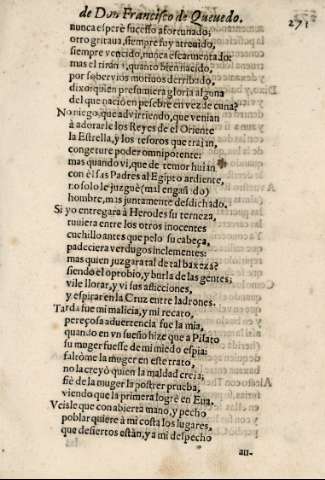 de Don Francisco de Quevedo.
271
nunca esperè sucesso afortunado;
otro gritaua, siempre fuy atreuido,
siempre vencido, nunca escarmentado:
mas el tirano, quanto bien nacido,
por soberuios motiuos derribado,
dixo: quien presumiera gloria alguna
del que naciò en pesebre en vez de cuna?
No niego, que aduirtiendo, que venian
à adorarle los Reyes de el Oriente
la Estrella, y los tesoros que traian,
congeturè poder omnipotente:
mas quando vi, que de temor huian
con èl sus Padres al Egipto ardiente,
no solo le juzguè (mal engañado)
hombre, mas juntamente desdichado.
Si yo entregara à Herodes su terneza,
tuuiera entre los otros inocentes
cuchillo antes que pelo su cabeça,
padeciera verdugos inclementes:
mas quien juzgara tal de tal baxeza?
siendo el oprobio, y burla de las gentes;
vile llorar, y vi sus aflicciones,
y espirar en la Cruz entre ladrones.
Tarda fue mi malicia, y mi recato,
pereçosa aduertencia fue la mia,
quando en vn sueño hize que a Pilato
su muger fuesse de mi miedo espia:
faltòme la muger en este trato,
no la creyò quien la maldad creia;
fiè de la muger la postrer prueba,
viendo que la primera logrè en Eua.
Veisle que con abierta mano, y pecho
poblar quiere à mi costa los lugares,
que desiertos estàn, y a mi despecho
au-